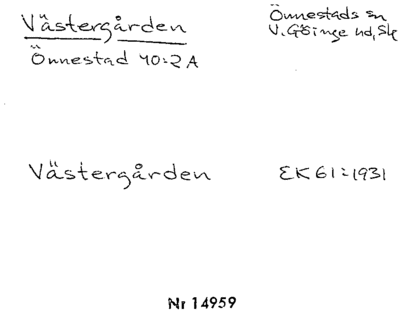 Västergården
Önnestads sn
V. Göinge hd, Sk
Önnestad 40:2 A
Västergården
EK 61:1931
Nr 14959